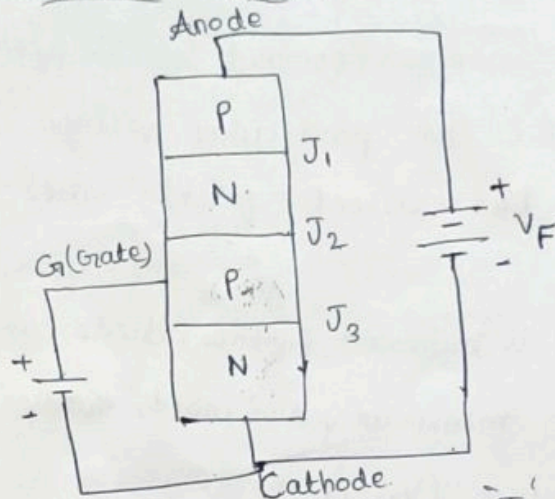 Anode
P
J1
N
J2
G(Gate)
P
J3
N
+
VF
-
+
+
Cathode